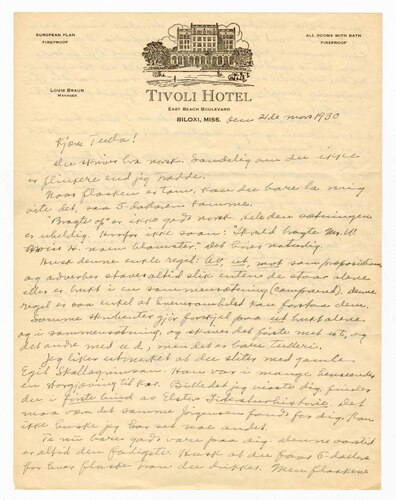 EUROPEAN PLAN
FIREPROOF
ALL ROOMS WITH BATH
FIREPROOF
LOUIS BRAUN
MANAGER
TIVOLI HOTEL
EAST BEACH BOULEVARD
BILOXI, MISS. den 21de mars 1930
Kjære Tulla!
Du skriver bra norsk. Sandelig om du ikke
er flinkere end jeg trodde.
Naar flasken er tom, kan du bare la mig
vite det, saa 5 dollaren kommer.
er ikke godt norsk. Hele den sætningen
er uheldig. Hvorfor ikke saan: Mr. W.
H. nam Det lyder naturlig.
Husk denne enkle regel: til, ut, mot som præposition
og adverber staves altid slik enten de staar alene
eller er brukt i en sammensætning (compound). Denne
regel er saa enkel at hversomhelst kan forstaa den.
Somme skribenter gjør forskjel paa ut brukt alene
og i sammensætning, og skriver det første med ut, og
det andre med ud, men det er bare tulleri.
Jeg liker utmerket at du sliter med gamle
Egil Skallagrimsson. Han var i mange henseender
en til kar. Billedet jeg viste dig, findes
du i første bind av Literaturhistorie, det
maa være det samme Jørgensen fandt for dig. Kan
ikke huske jeg har set noe andet.
Ta nu bare godt vare paa dig. Denne aarstid
er altid den farligste. Husk at du faar 5 dollars
for hver flaske tran du drikker. Men flaskene